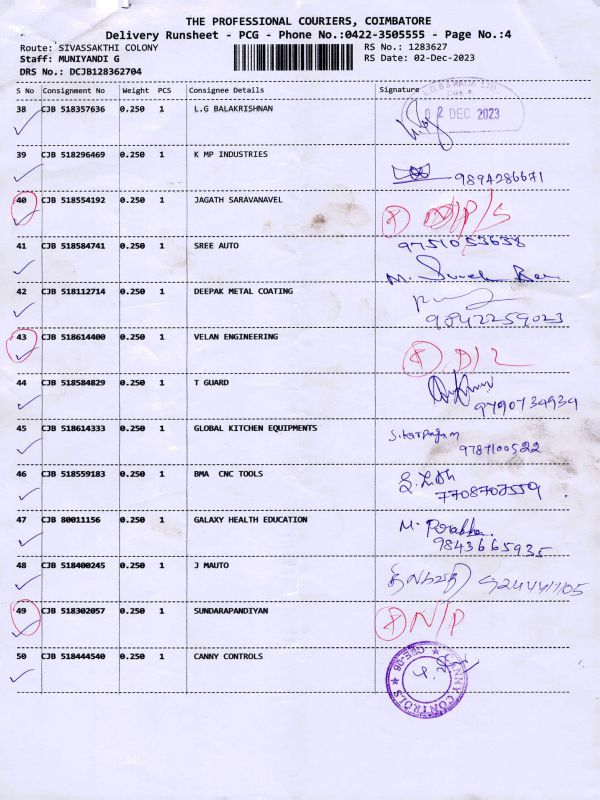 THE PROFESSIONAL COURIERS, COIMBATORE
Delivery Runsheet - PCG - Phone No.:0422-3505555 - Page No.:4
Route: SIVASSAKTHI COLONY RS No.: 1283627
Staff: MUNIYANDI G RS Date: 02-Dec-2023
DRS No.: DCJB128362704
S No Consignment No Weight PCS Consignee Details Signature
38 CJB 518357636 0.250 1 L.G BALAKRISHNAN
2 DEC 2023
39 CJB 518296469 0.250 1 K MP INDUSTRIES
9894286671
40 CJB 518554192 0.250 1 JAGATH SARAVANAVEL
41 CJB 518584741 0.250 1 SREE AUTO 9751053638
42 CJB 518112714 0.250 1 DEEPAK METAL COATING
9842259023
43 CJB 518614400 0.250 1 VELAN ENGINEERING
D/L
44 CJB 518584829 0.250 1 T GUARD
9790734934
45 CJB 518614333 0.250 1 GLOBAL KITCHEN EQUIPMENTS
9787100522
46 CJB 518559183 0.250 1 BMA CNC TOOLS
7708707559
47 CJB 80011156 0.250 1 GALAXY HEALTH EDUCATION M. Prabha
9843665935
48 CJB 518400245 0.250 1 J MAUTO
49 CJB 518302057 0.250 1 SUNDARAPANDIYAN N/P
50 CJB 518444540 0.250 1 CANNY CONTROLS
CANNY CONTROLS ★ CBE-06 ★